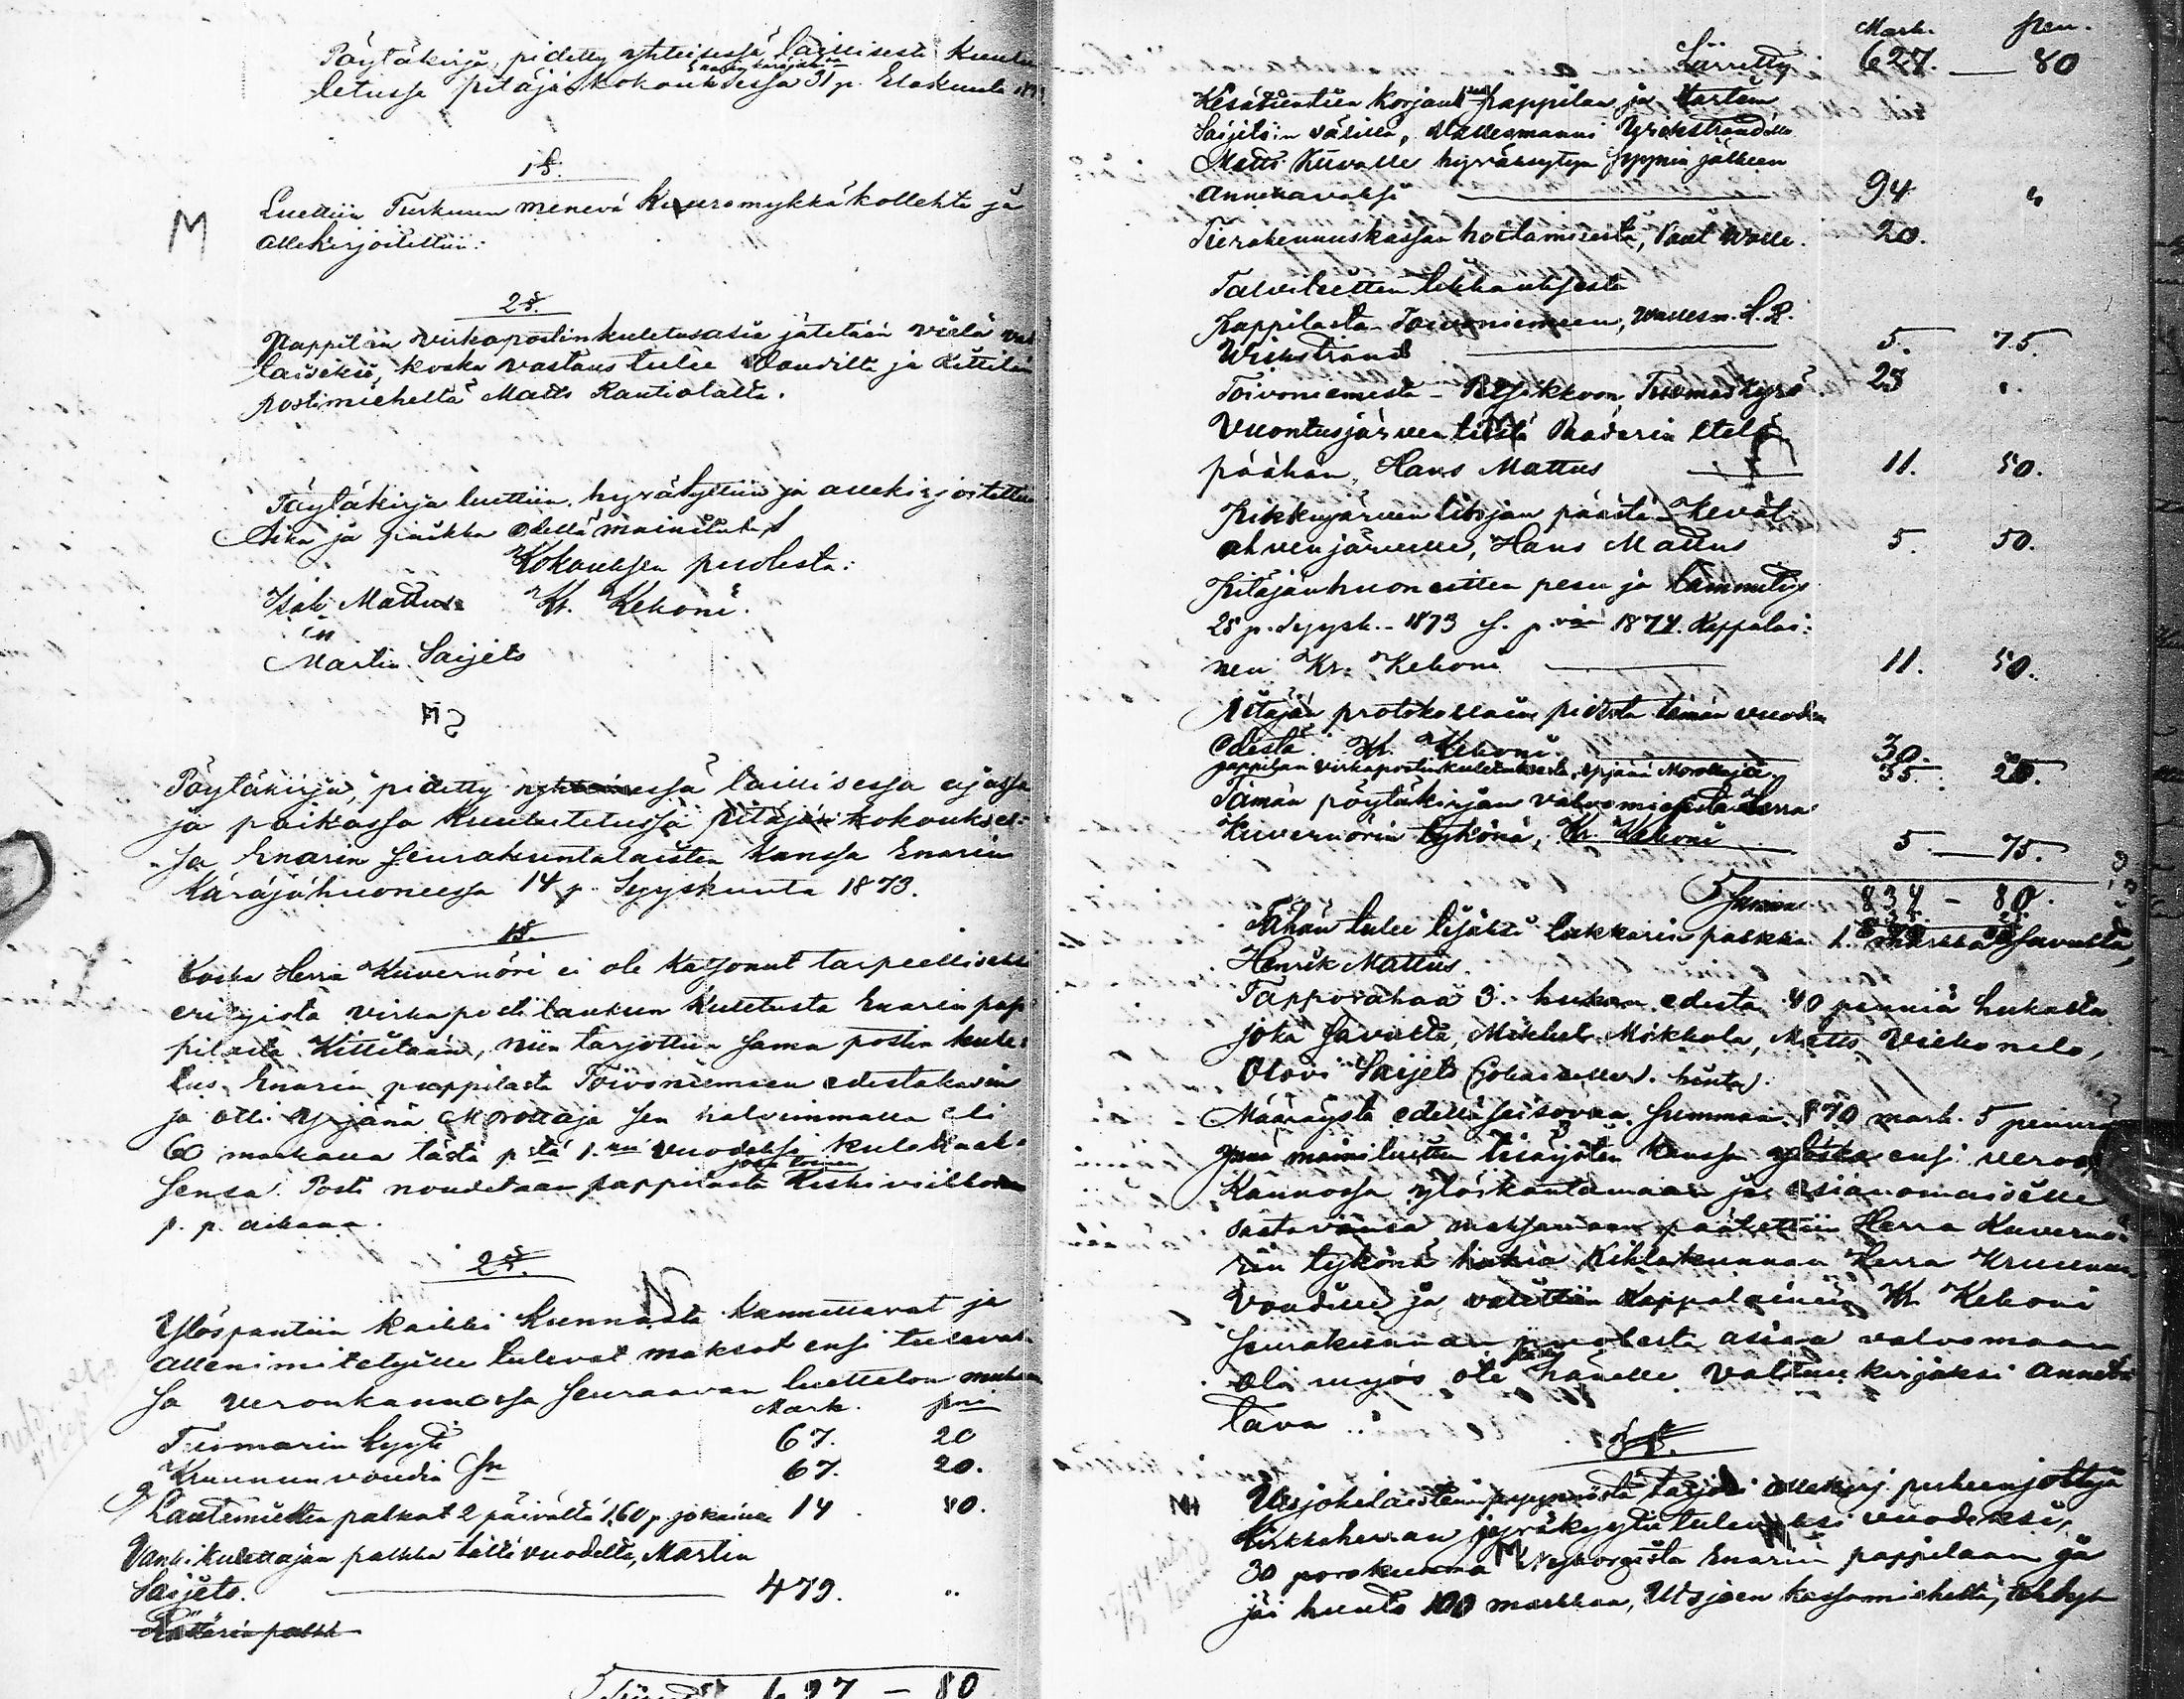 Pöytäkirja, pidetty yhteisessä laillisesti kuulu
letussa pitäjäkokouksessa 31 p. Elokuuta
1 §.
M
Luettiin Turkuun menevä Kuuromykkäkollehta ja
allekirjoitettiin:
2 §.
Pappilan virkapostinkuletusasia jätetään vielä
laiseksi, koska vastaus tulee Voudilta ja Kittilän
postimieheltä Matts Rautiolalta.
Pöytäkirja luettiin, hyväksyttiin ja allekirjoitettiin
Aika ja paikka edellä mainitut
Kokouksen puolesta:
Isak Mattus Kr. Kekoni.
Martin Saijets
Pöytäkirja, pidetty laillisessa ajassa
ja paikassa kuulutetussa pitäjänkokoukses-
sa Enarin seurakuntalaisten kanssa Enarin
Käräjähuoneessa 14 p. Syyskuuta 1873.
1 §.
Koska Herra Kuvernöri ei ole katsonut tarpeelliseksi
erityistä virkapostilaukun kuletusta Enarin pap
pilasta Kittilään, niin tarjottiin sama postin kule-
tus Enarin pappilasta Toivoniemeen edestakasin
ja otti Yrjänä Morottaja sen halvimmalla eli
60 markalla tästä p:stä 1. vuodeksi kulettaak-
sensa. Posti noudetaan pappilasta joka toinen Keskiviikko
p. p. aikana.
2 §.
Ylöspantiin kaikki kunnasta kannettavat ja
allenimitetyille tulevat maksot ensi tulevas
sa veronkannossa seuraavan luettelon mukaan
Mark. pni
Tuomarin kyyti 67. 20
Kruununvoudin Sn 67. 20.
Lautamiesten palkat 2 päivältä 1,60 p. jokainen 14 . 40.
Vanhikulettajan palkka tältä vuodelta, Martin
Saijets. 479. "
Summa 627 — 80
Mark. pen.
Siirretty 627. — 80
Kesätientien korjaus pappilan ja Martin
Saijets:in välillä, Vallesmanni Wickstrandille
Matts Kiivalle hyväksytyn syynin jälkeen
annettavaksi 94 "
Tierakennuskassan hoitamisesta, sama Walle. 20.
Talviteitten tekkauksesta
Pappilasta Toivoniemeen, Wallesm. H. R.
Wickstrand 5. 75.
Toivoniemestä — Ritsikkoon, Tuomas Kyrö 23 "
Vuontusjärven tieltä Paadarin etelä
päähän, Hans Mattus 11. 50.
päästä Kevät
ahvenjärvelle, Hans Mattus 5. 50.
Pitäjänhuoneitten pesu ja lämmitys
25 p. Syysk. 1873 s. p:vään 1874. Kappalai-
nen Kr. Kekoni 11. 50.
Pitäjän protokollain pidosta tämän vuoden
edestä. Kr. Kekoni 30.
pappilan virkapostinkuletuksesta, Yrjänä Morottaja 35. 20.
Tämän pöytäkirjan valvomisesta Herra
Kuvernörin tykönä, Kr. Kekoni 5 — 75.
Summa 834 — 80.
Tähän tulee lisäksi lukkarin palkka 1. savulta,
Henrik Mattus.
Tapporahaa 3. hukan edestä 40 penniä hukalta
joka savulta, Mikkel Mikkola, Matts Virkonelo,
Olovi Saijets
Määräystä edelläseisovan summan 870 mark. 5 penniä
mainittuitten lisäysten kanssa ensi veron
kannossa ylöskantamaan ja asianomaisille
maksamaan, päätettiin Herra Kuvernö-
rin tykönä hakia Kihlakunnan Herra Kruunun
Voudille ja valittiin Kappalainen Kr. Kekoni
seurakunnan puolesta asiaa valvomaan
oli myös hänelle valtuuskirjaksi annet
tava.
3 §.
Utsjokilaisten pyynnöstä tarjosi allekirj. puheenjohtaja
Kirkkoherran kyytiä tulevaksi vuodeksi,
30 porokuormaa Nyborgista Enarin pappilaan ja
jäi huuto 100 markkaan, Utsjoen